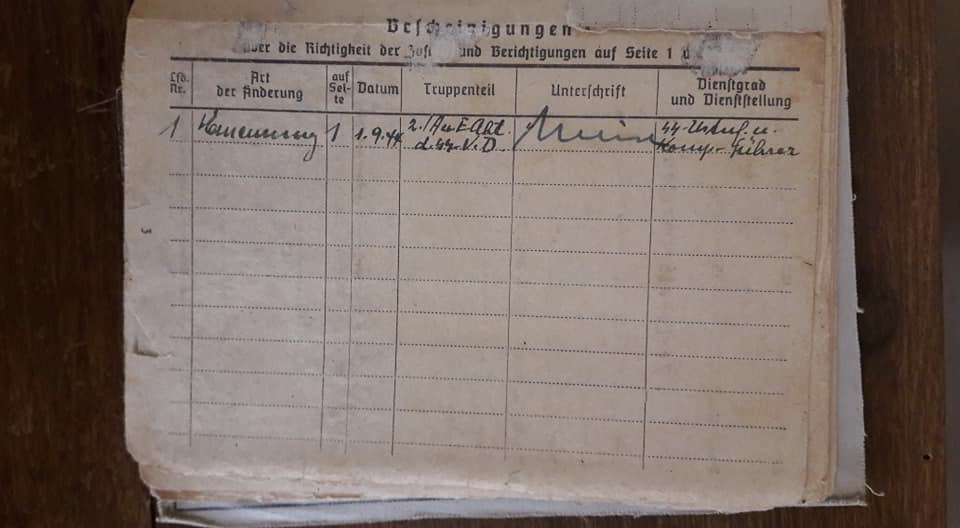 Bescheinigungen
über die Richtigkeit der und Berichtigungen auf Seite 1
Lfd. Nr.
Art der Änderung
auf Sei- te
Datum
Truppenteil
Unterschrift
Dienstgrad und Dienststellung
1
Ernennung
1
1.9.44
2./
d. SS. V. D.
SS-Ustuf. u.
Komp.-Führer